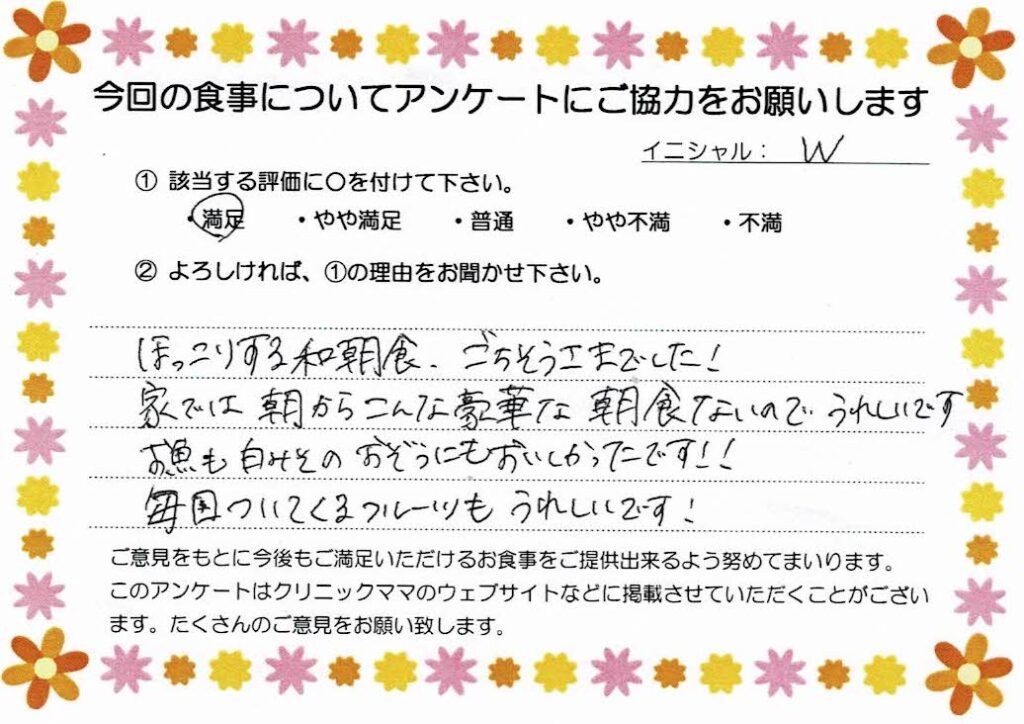 今回の食事についてアンケートにご協力をお願いします
イニシャル： W
① 該当する評価に〇を付けて下さい。
・満足 ・やや満足 ・普通 ・やや不満 ・不満
② よろしければ、①の理由をお聞かせ下さい。
ほっこりする和朝食、ごちそうさまでした！
家では朝からこんな豪華な朝食ないのでうれしいです
お魚も白みそのおぞうにもおいしかったです！！
毎回ついてくるフルーツもうれしいです！
ご意見をもとに今後もご満足いただけるお食事をご提供出来るよう努めてまいります。
このアンケートはクリニックママのウェブサイトなどに掲載させていただくことがござい
ます。たくさんのご意見をお願い致します。